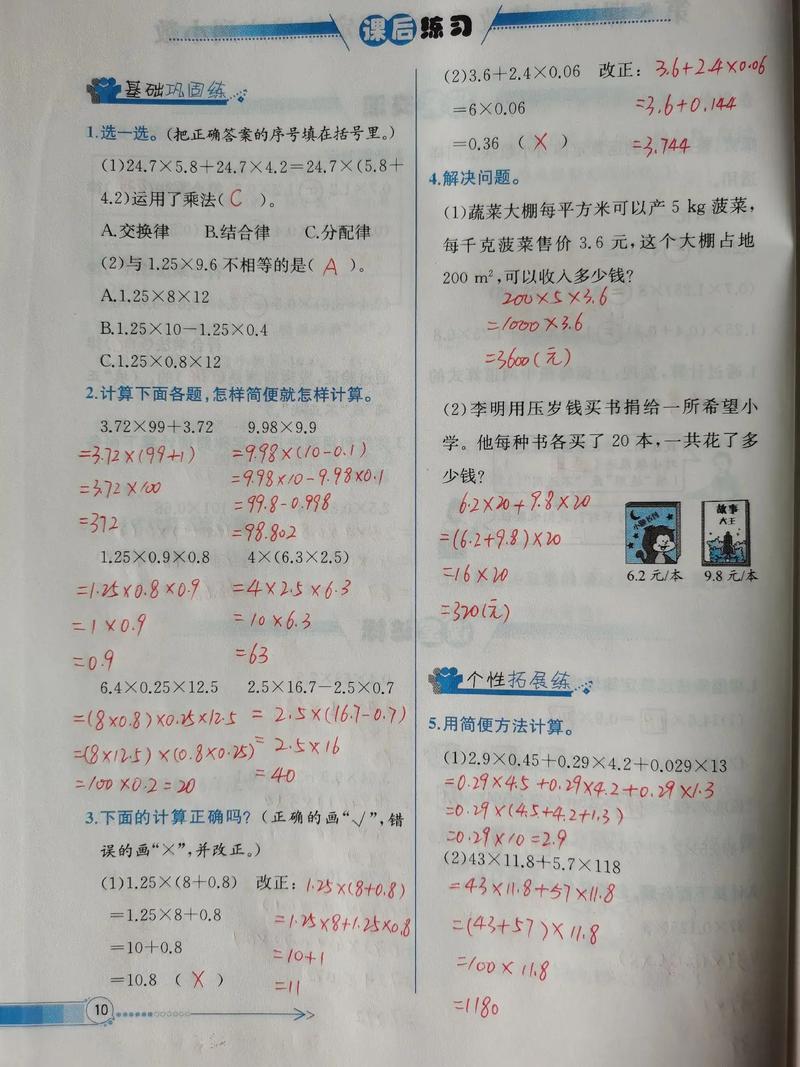 课后练习
基础巩固练
1.选一选。(把正确答案的序号填在括号里。)
(1)24.7×5.8+24.7×4.2=24.7×(5.8+
4.2)运用了乘法( C )。
A.交换律 B.结合律 C.分配律
(2)与1.25×9.6不相等的是( A )。
A.1.25×8×12
B.1.25×10-1.25×0.4
C.1.25×0.8×12
2.计算下面各题,怎样简便就怎样计算。
3.72×99+3.72 9.98×9.9
=3.72×(99+1) =9.98×(10-0.1)
=3.72×100 =9.98×10-9.98×0.1
=372 =99.8-0.998
=98.802
1.25×0.9×0.8 4×(6.3×2.5)
=1.25×0.8×0.9 =4×2.5×6.3
=1×0.9 =10×6.3
=0.9 =63
6.4×0.25×12.5 2.5×16.7-2.5×0.7
=(8×0.8)×0.25×12.5 =2.5×(16.7-0.7)
=(8×12.5)×(0.8×0.25) =2.5×16
=100×0.2=20 =40
3.下面的计算正确吗?(正确的画“√”,错
误的画“×”,并改正。)
(1)1.25×(8+0.8) 改正: 1.25×(8+0.8)
=1.25×8+0.8 =1.25×8+1.25×0.8
=10+0.8 =10+1
=10.8 ( × ) =11
10
(2)3.6+2.4×0.06 改正: 3.6+2.4×0.06
=6×0.06 =3.6+0.144
=0.36 ( × ) =3.744
4.解决问题。
(1)蔬菜大棚每平方米可以产5 kg菠菜,
每千克菠菜售价3.6元,这个大棚占地
200 m²,可以收入多少钱?
200×5×3.6
=1000×3.6
=3600(元)
(2)李明用压岁钱买书捐给一所希望小
学。他每种书各买了20本,一共花了多
少钱?
6.2×20+9.8×20
=(6.2+9.8)×20
=16×20
=320(元)
故事
大王
6.2元/本 9.8元/本
个性拓展练
5.用简便方法计算。
(1)2.9×0.45+0.29×4.2+0.029×13
=0.29×4.5+0.29×4.2+0.29×1.3
=0.29×(4.5+4.2+1.3)
=0.29×10=2.9
(2)43×11.8+5.7×118
=43×11.8+57×11.8
=(43+57)×11.8
=100×11.8
=1180